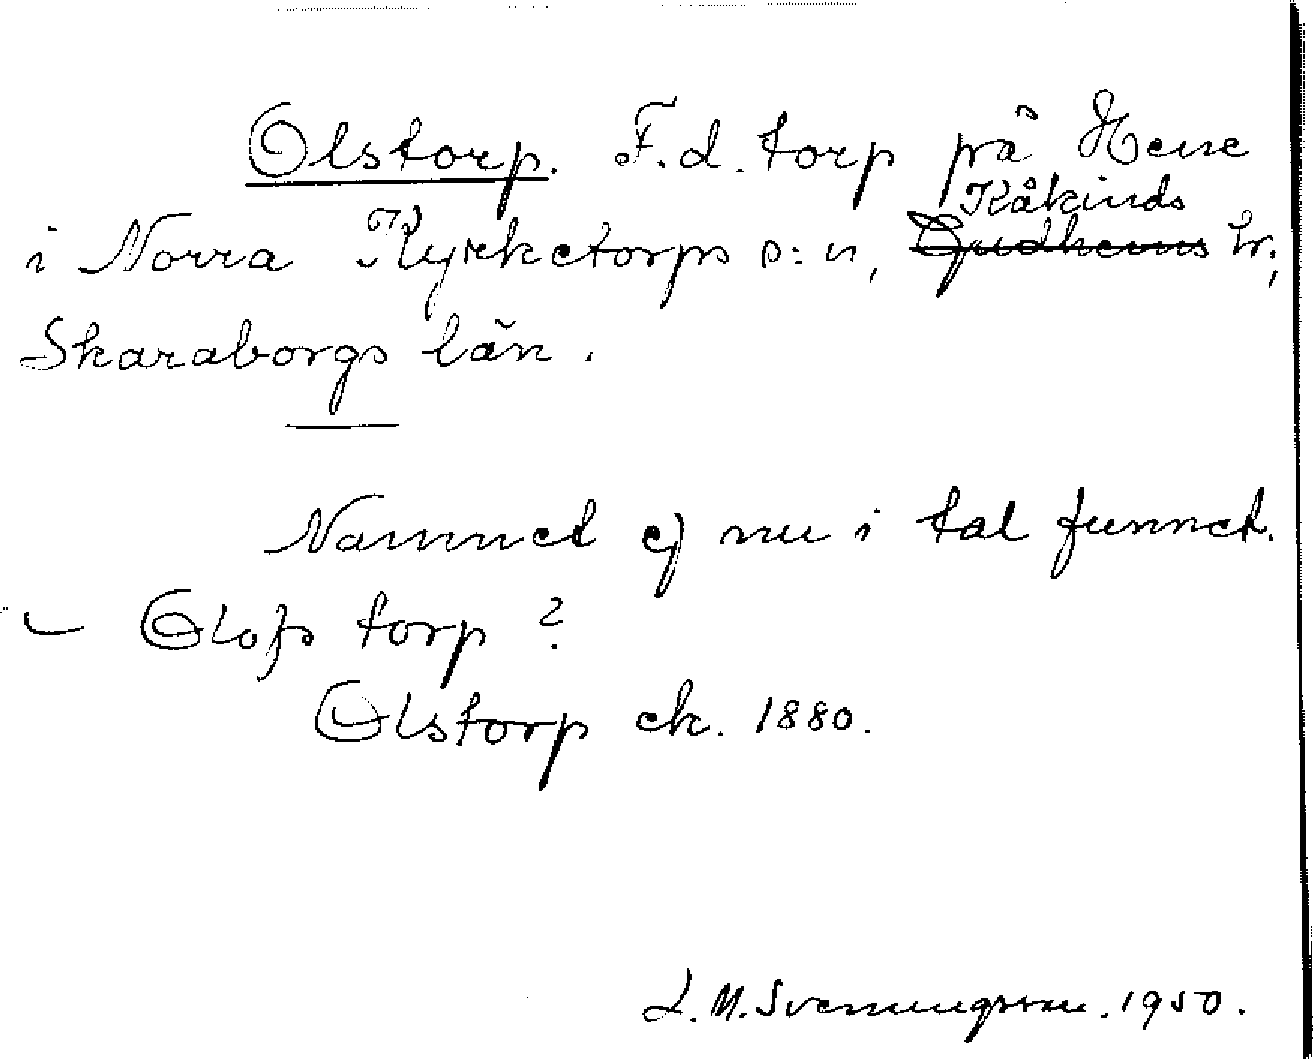 Olstorp. F.d. torp på Hene
i Norra Kyrketorps s:n, Kåkinds Gudhems hr;
Skaraborgs län.
Namnet ej nu i tal funnet.
– Olofs torp?
Olstorp ek. 1880.
L.M. Svenungsson. 1950.